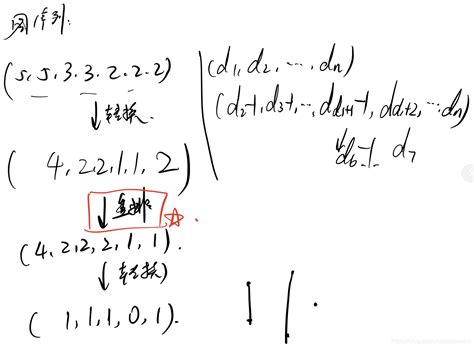 图序列:
(5, 5, 3, 3, 2, 2, 2)
↓转换.
( 4, 2, 2, 1, 1, 2 )
↓重排 ☆.
(4, 2, 2, 2, 1, 1).
↓转换)
( 1, 1, 1, 0, 1).
(d₁, d₂, ..., dₙ)
(d₂-1, d₃-1, ..., d_{d₁+1}-1, d_{d₁+2}, ... dₙ)
d₆-1 d₇